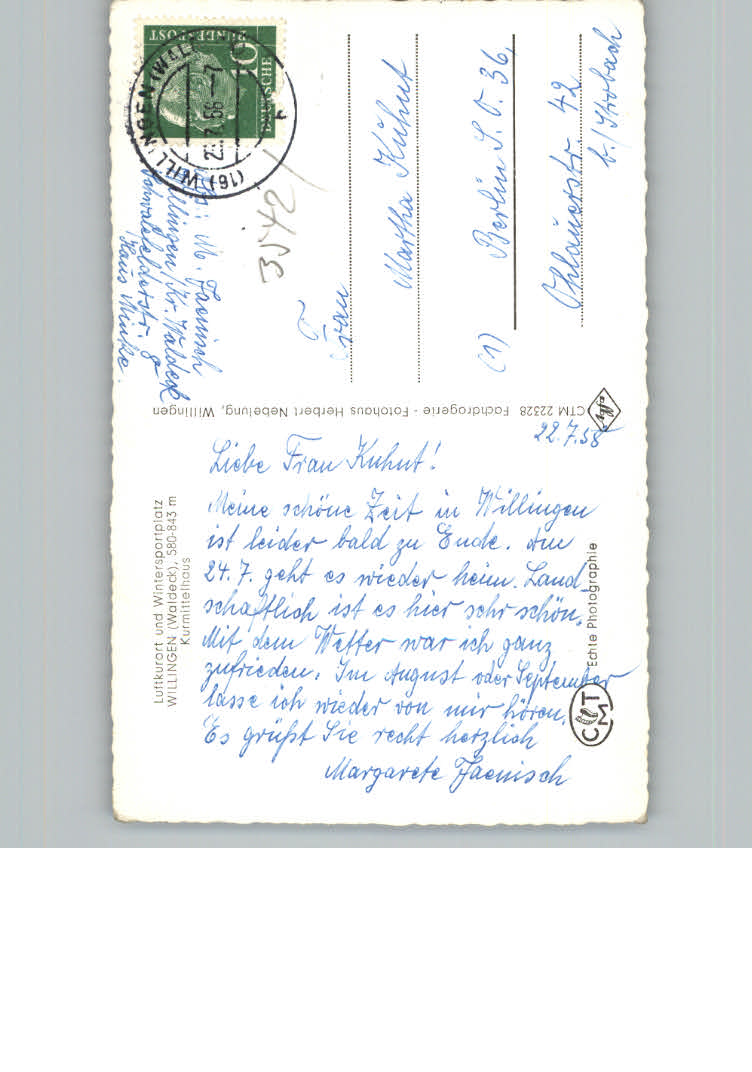 DEUTSCHE
BUNDESPOST
10
(16) WILLINGEN (WAL
3542/
M. Jaenisch
Willingen/Kr. Waldeck
Haus Minke.
Frau
Martha Kuhnt
(1) Berlin S.O. 36,
Ohlauerstr. 42
b./Strobach
CTM 22328 Fachdrogerie - Fotohaus Herbert Nebelung, Willingen
Luftkurort und Wintersportplatz
WILLINGEN (Waldeck), 580-843 m
Kurmittelhaus
22.7.58
Liebe Frau Kuhnt!
Meine schöne Zeit in Willingen
ist leider bald zu Ende. Am
24.7. geht es wieder heim. Land-
schaftlich ist es hier sehr schön.
Mit dem Wetter war ich ganz
zufrieden. Im August oder September
lasse ich wieder von mir hören.
Es grüßt Sie recht herzlich
Margarete Jaenisch
Echte Photographie
CMT